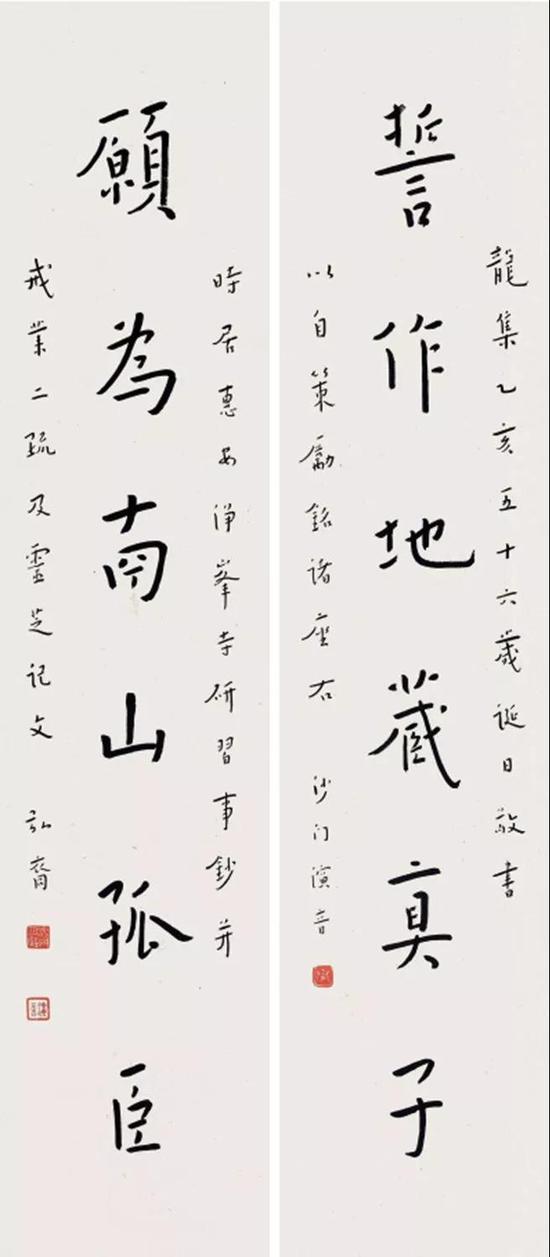 誓作地藏真子
龍集乙亥五十六歲誕日敬書
以自策勵銘諸座右
沙门演音
願為南山孤臣
時居惠安淨峯寺研習事鈔并
戒業二疏及靈芝記文
弘裔